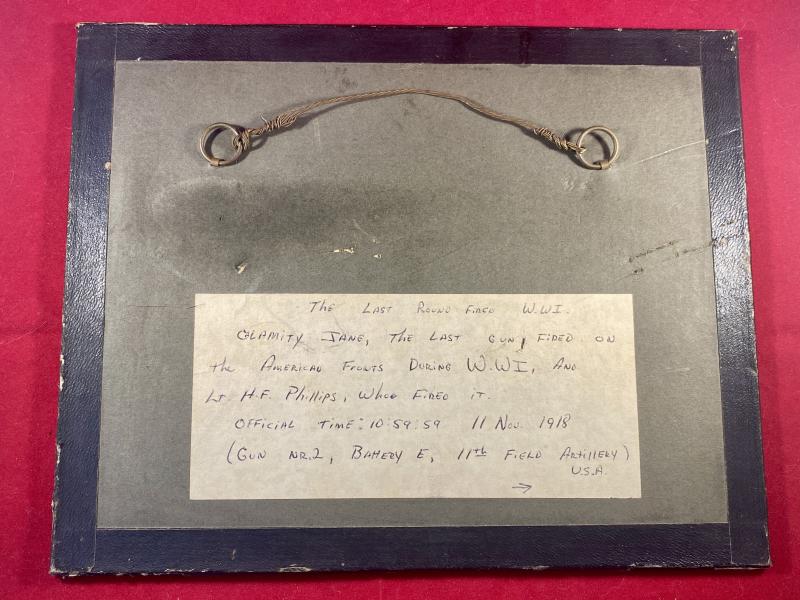 The Last Round Fired W.W.I.
Calamity Jane, The Last Gun, Fired on
the American Fronts During W.W.I, And
Lt. H.F. Phillips, Whoo Fired it.
Official Time: 10:59:59 11 Nov. 1918
(Gun Nr.2, Battery E, 11th Field Artillery)
U.S.A.
→